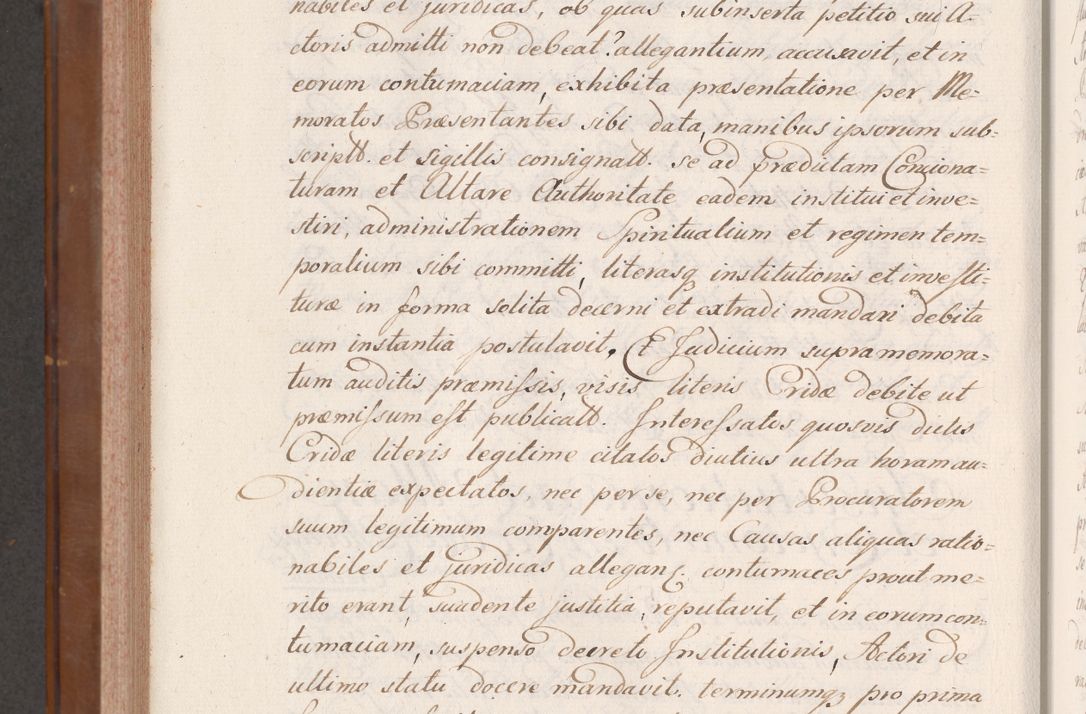 nabiles et juridicas, ob quas subinserta petitio sui A-
ctoris admitti non debeat? allegantium, accusavit, et in
eorum contumaciam, exhibita præsentatione per Me=
moratos Præsentantes sibi data, manibus ipsorum sub=
scriptt. et sigillis consignatt. se ad prædictam Conciona=
turam et Altare Authoritate eadem institui et inve=
stiri, administrationem Spiritualium et regimen tem=
poralium sibi committi, literasq institutionis et investi-
turæ in forma solita decerni et extradi mandari debita
cum instantia postulavit. Et Judicium supra memora=
tum auditis præmissis, visis literis Cridæ debite ut
præmissum est publicatt. Interessatos quosvis dictis
Cridæ literis legitime citatos diutius ultra horam au=
dientiæ expectatos, nec per se, nec per Procuratorem
suum legitimum comparentes, nec Causas aliquas ratio=
nabiles et juridicas allegan. contumaces prout me=
rito erant, suadente justitia, reputavit, et in eorum con=
tumaciam, suspenso decreto Institutionis, Actori de
ultimo statu docere mandavit. terminumq3 pro prima